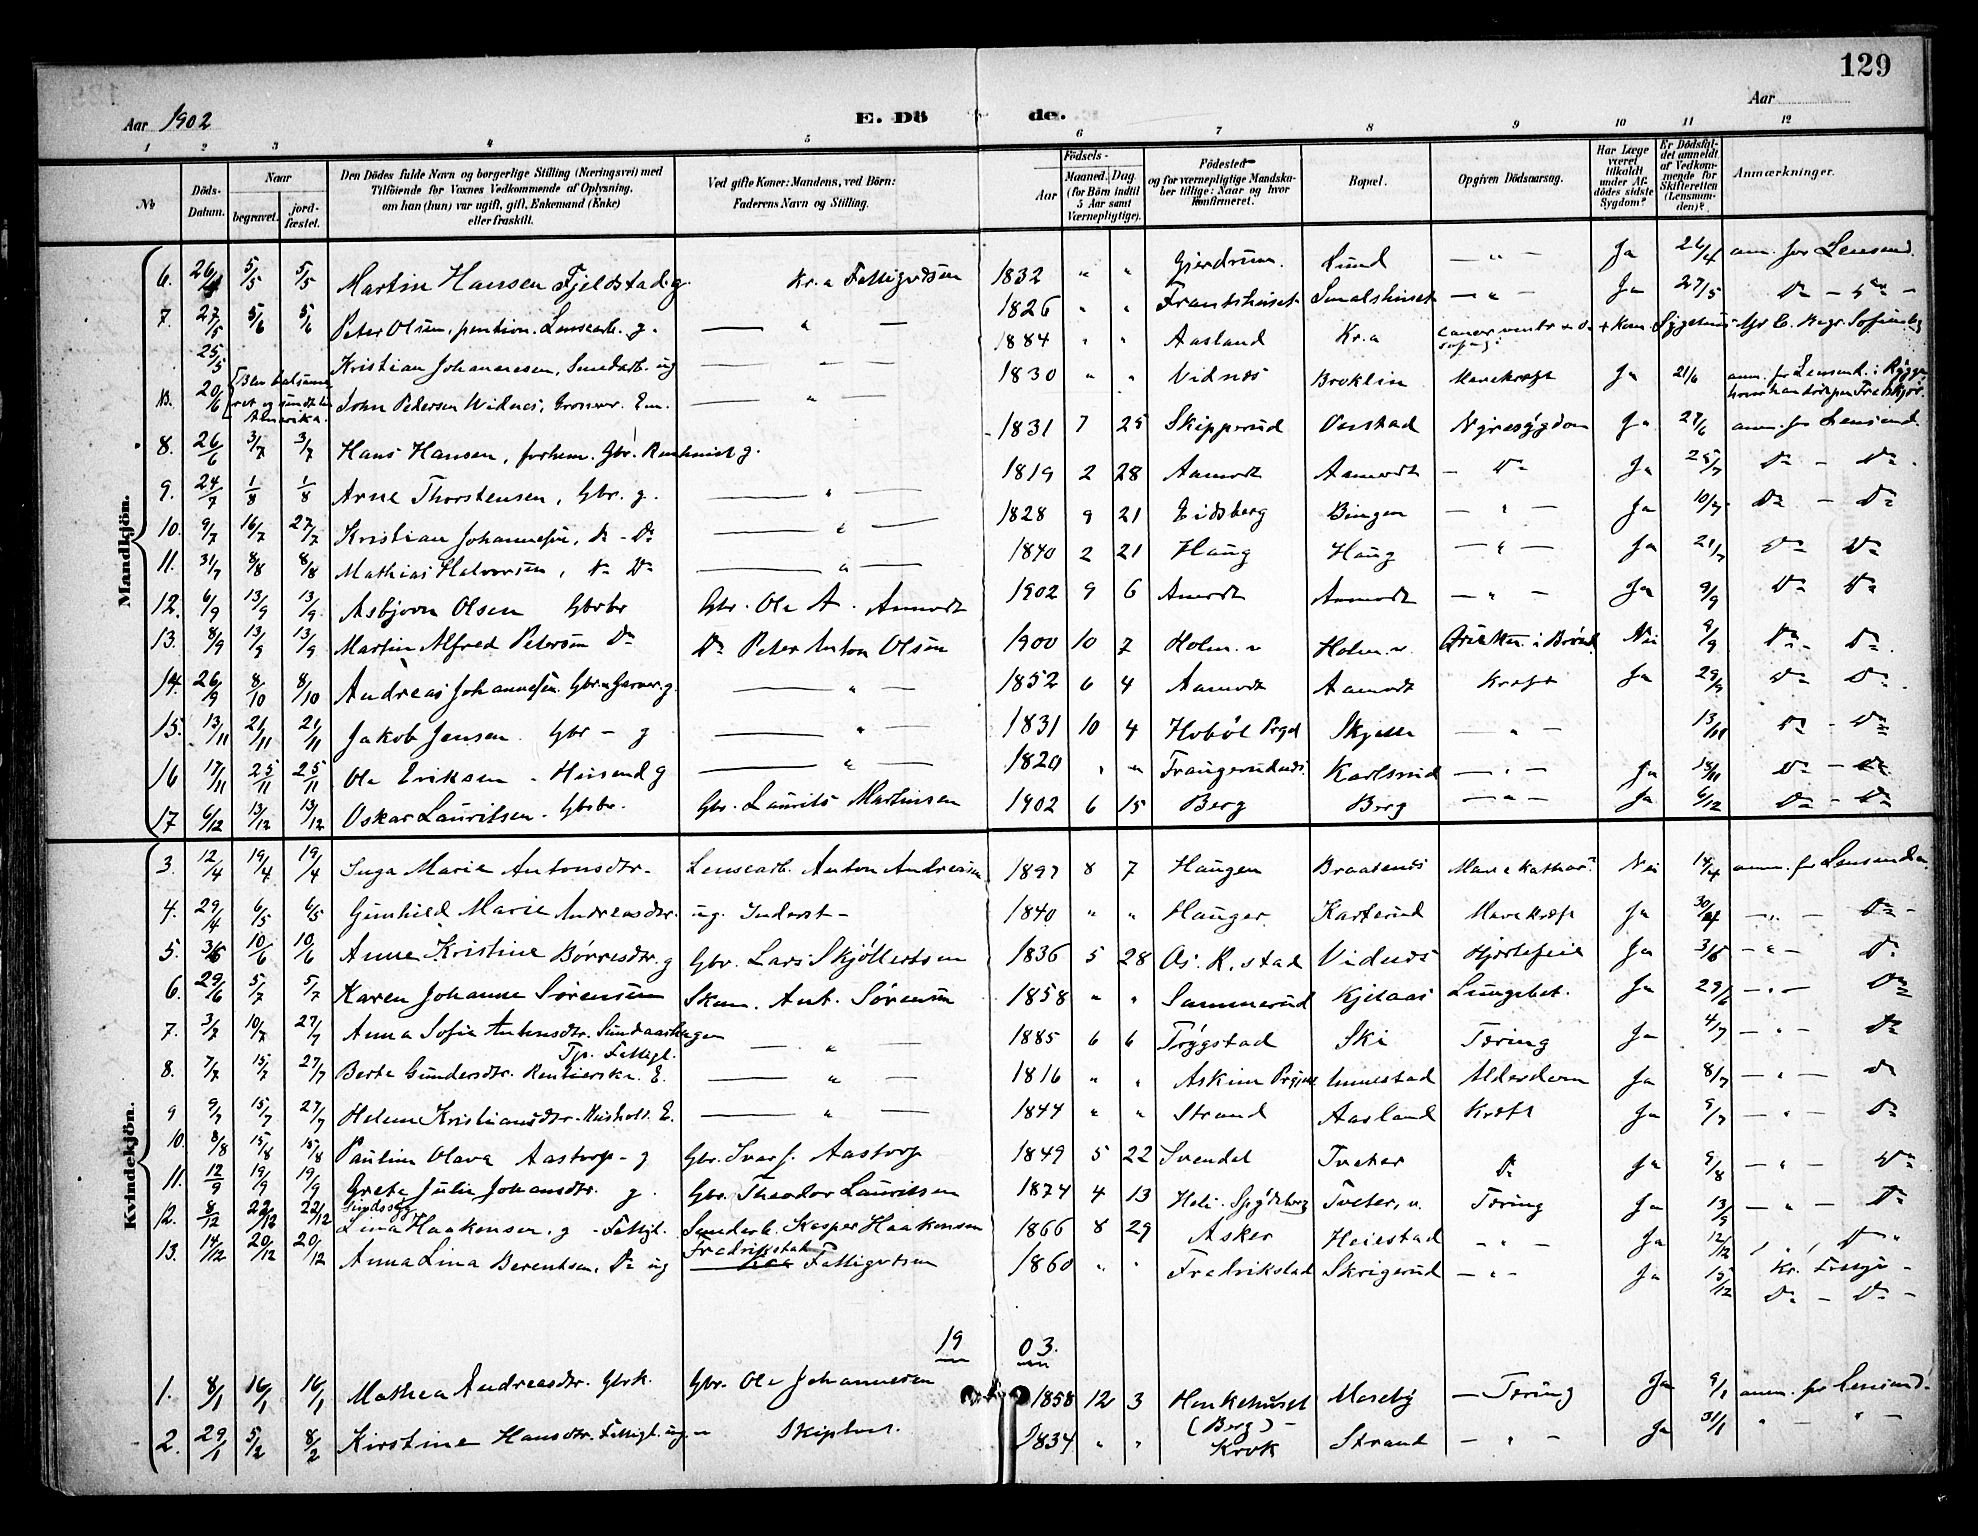 129
Aar 1902 E. Döde. Aar
1 2 3 4 5 6 7 8 9 10 11 12
№ Döds-Datum. Naar begravet. jordfæstet. Den Dödes fulde Navn og borgerlige Stilling (Næringsvei) med Tilföiende for Voxnes Vedkommende af Oplysning, om han (hun) var ugift, gift, Enkemand (Enke) eller fraskilt. Ved gifte Koner: Mandens, ved Börn: Faderens Navn og Stilling. Födsels- Aar Maaned. Dag. (for Börn indtil 5 Aar samt Værnepligtige). Födested og for værnepligtige Mandskaber tillige: Naar og hvor Konfirmeret. Bopæl. Opgiven Dödsaarsag. Har Læge været tilkaldt under Afdödes sidste Sygdom? Er Dödsfaldet anmeldt af Vedkommende for Skifteretten (Lensmanden)? Anmærkninger.
Mandkjön.
6. 26/4 5/5 5/5 Martin Hansen Fjeldstad g. Kr.a Fattigvæsen 1832 " " Gjerdrum Rund — " — Ja 26/4 anm. for Lensmd.
7. 27/5 5/6 5/6 Peter Olsen, pention. Lensearb. g. — " — 1826 " " Frantshuset Smalshuset — " — Ja 27/5 Do —
25/5 Kristian Johannesen, Smedarb. ug — " — 1884 " " Aasland Kr.a
20/6 Amerika. John Pedersen Widnes, Em. — " — 1830 " " Vidnes Broklin Mavekræft Ja 21/6 anm. for Lensmd. i Rygge
8. 26/6 3/7 3/7 Hans Hansen, forhen. Gbr. g. 1831 7 25 Skipperud Overstad Nyresygdom Ja 27/6 anm. for Lensmd.
9. 24/7 1/8 1/8 Arne Thorstensen, Gbr. g. — " — 1819 2 28 Aamodt Aamodt — Do Ja 25/7 Do — Do
10. 9/7 16/7 27/7 Kristian Johannesen, Do — Do — " — 1828 9 21 Eidsberg Bingen — " — Ja 10/7 Do — Do
11. 31/7 8/8 8/8 Mathias Halvorsen, Do Do — " — 1840 2 21 Haug Haug — " — Ja 21/7 Do Do
12. 6/9 13/9 13/9 Asbjørn Olsen Gbrbr Gbr. Ole A. Aamodt 1902 9 6 Amodt Aamodt — " — Ja 9/9 Do Do
13. 8/9 13/9 13/9 Martin Alfred Petersen Do Do Peter Anton Olsen 1900 10 7 Holm. v Holm. v. Druknet i Brønd Nei 9/9 Do Do
14. 26/9 8/10 8/10 Andreas Johannesen. Gbr. g. — " — 1852 6 4 Aamodt Aamodt Kræft Ja 29/9 Do Do
15. 13/11 21/11 21/11 Jakob Jensen Gbr — g — " — 1831 10 4 Hobøl Prgd Skjelle — " — 13/11 Do — Do
16 17/11 25/11 25/11 Ole Eriksen — Husmd g — " — 1820 " " Karlsrud — " — Ja 18/11 Do — Do
17 6/12 13/12 13/12 Oskar Lauritsen — Gbrbr. Gbr. Laurits Martinsen 1902 6 15 Berg Berg — " — Ja 6/12 Do — Do
Kvindekjön.
3. 12/4 19/4 19/4 Inga Marie Antonsdtr. Lensearb. Anton Andresen 1897 8 7 Haugen Braatenes Mavekathar Nei 14/4 anm. for Lensmden
4. 29/4 6/5 6/5 Gunhild Marie Andreasdtr. ug. Inderst — 1840 " " Hauger Karterud Mavekræft Ja 30/4 — " — Do
5. 3/6 10/6 10/6 Anne Kristine Børresdtr. g Gbr. Lars Skjöllertsen 1836 5 28 Vidnes Hjertefeil Ja 3/6 — " — Do
6. 29/6 5/7 5/7 Karen Johanne Sørensen Skom. Ant. Sørensen 1858 " " Sammerud Kjelaas Lungebet. Ja 29/6 — " — Do
7. 3/7 10/7 27/7 Anna Sofie Antonsdtr. Sundaashagen — " — 1885 6 6 Trøgstad Ski Tæring Ja 4/7 — " — Do
8. 7/7 15/7 27/7 Berte Gundersdtr. Rentierske. E. — " — 1816 " " Askim Prgjd Unnestad Alderdom Ja 8/7 — " — Do
9 9/7 15/7 27/7 Helene Kristiansdtr. Hushold. E. — " — 1844 " " Strand Aasland Kræft Ja 9/7 — " — Do
10. 8/8 15/8 15/8 Pauline Olava Aastorp — g Gbr. Ivar J. Aastorp 1849 5 22 Svendal Tveter Do Ja 9/8 — " — Do
11. 12/9 19/9 19/9 Grete Julie Johansdtr. g. Gbr. Theodor Lauritsen 1874 4 13 Heli. Spydeberg Tveter, v. Tæring Ja 13/9 — " — Do
12. 8/12 22/12 22/12 Lina Haakensen, g — Fattigl. Kasper Haakensen 1866 8 29 Asker Heiestad — " — Ja 12/12 Do
13. 14/12 20/12 20/12 Anna Lina Berentsen. Do ug Fredrikstad Fattigvæsen 1860 " " Fredrikstad Skrigerud — " — Ja 15/12 Do — Do —
1903.
1. 8/1 16/1 16/1 Mathea Andreasdtr. Gbrk. Gbr. Ole Johannesen 1858 12 3 Henkehuset (Berg) Moseby — Tæring Ja 9/1 anm. for Lensmd.
2. 29/1 5/2 8/2 Kirstine Hansdtr. Fattigl. ug " Skiptvet. 1834 " " Krok Strand — " — Ja 31/1 " — " —